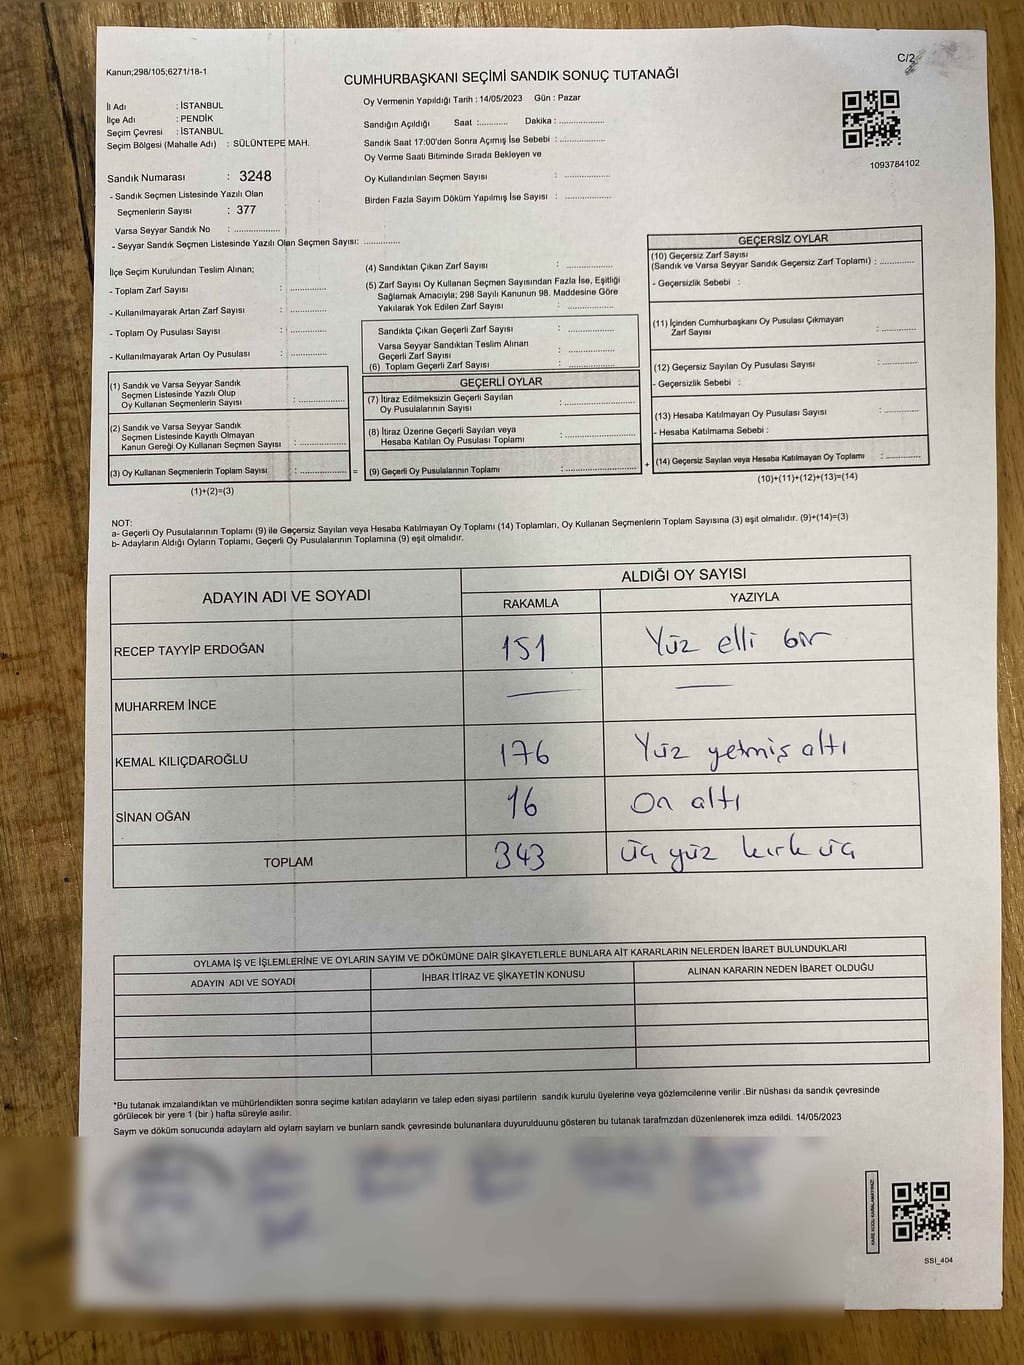 Kanun;298/105;6271/18-1
C/2
CUMHURBAŞKANI SEÇİMİ SANDIK SONUÇ TUTANAĞI
İl Adı : İSTANBUL
İlçe Adı : PENDİK
Seçim Çevresi : İSTANBUL
Seçim Bölgesi (Mahalle Adı) : SÜLÜNTEPE MAH.
Sandık Numarası : 3248
- Sandık Seçmen Listesinde Yazılı Olan
Seçmenlerin Sayısı : 377
Varsa Seyyar Sandık No : ..................
- Seyyar Sandık Seçmen Listesinde Yazılı Olan Seçmen Sayısı: ..............
Oy Vermenin Yapıldığı Tarih : 14/05/2023 Gün : Pazar
Sandığın Açıldığı Saat :........... Dakika : ..................
Sandık Saat 17:00'den Sonra Açımış İse Sebebi : ..................
Oy Verme Saati Bitiminde Sırada Bekleyen ve
Oy Kullandırılan Seçmen Sayısı : ..................
Birden Fazla Sayım Döküm Yapılmış İse Sayısı : ..................
1093784102
İlçe Seçim Kurulundan Teslim Alınan;
- Toplam Zarf Sayısı : ..............
- Kullanılmayarak Artan Zarf Sayısı : ..............
- Toplam Oy Pusulası Sayısı : ..............
- Kullanılmayarak Artan Oy Pusulası : ..............
(1) Sandık ve Varsa Seyyar Sandık
Seçmen Listesinde Yazılı Olup
Oy Kullanan Seçmenlerin Sayısı : ..................
(2) Sandık ve Varsa Seyyar Sandık
Seçmen Listesinde Kayıtlı Olmayan
Kanun Gereği Oy Kullanan Seçmen Sayısı : ..................
(3) Oy Kullanan Seçmenlerin Toplam Sayısı : .................. =
(1)+(2)=(3)
(4) Sandıktan Çıkan Zarf Sayısı : ..................
(5) Zarf Sayısı Oy Kullanan Seçmen Sayısından Fazla İse, Eşitliği
Sağlamak Amacıyla; 298 Sayılı Kanunun 98. Maddesine Göre
Yakılarak Yok Edilen Zarf Sayısı : ..................
Sandıkta Çıkan Geçerli Zarf Sayısı : ..................
Varsa Seyyar Sandıktan Teslim Alınan
Geçerli Zarf Sayısı : ..................
(6) Toplam Geçerli Zarf Sayısı : ..................
GEÇERLİ OYLAR
(7) İtiraz Edilmeksizin Geçerli Sayılan
Oy Pusulalarının Sayısı : ..................
(8) İtiraz Üzerine Geçerli Sayılan veya
Hesaba Katılan Oy Pusulası Toplamı : ..................
(9) Geçerli Oy Pusulalarının Toplamı : .................. +
GEÇERSİZ OYLAR
(10) Geçersiz Zarf Sayısı
(Sandık ve Varsa Seyyar Sandık Geçersiz Zarf Toplamı) : ..............
- Geçersizlik Sebebi :
(11) İçinden Cumhurbaşkanı Oy Pusulası Çıkmayan
Zarf Sayısı : ..............
(12) Geçersiz Sayılan Oy Pusulası Sayısı : ..............
- Geçersizlik Sebebi :
(13) Hesaba Katılmayan Oy Pusulası Sayısı : ..............
- Hesaba Katılmama Sebebi :
(14) Geçersiz Sayılan veya Hesaba Katılmayan Oy Toplamı : ..............
(10)+(11)+(12)+(13)=(14)
NOT:
a- Geçerli Oy Pusulalarının Toplamı (9) ile Geçersiz Sayılan veya Hesaba Katılmayan Oy Toplamı (14) Toplamları, Oy Kullanan Seçmenlerin Toplam Sayısına (3) eşit olmalıdır. (9)+(14)=(3)
b- Adayların Aldığı Oyların Toplamı, Geçerli Oy Pusulalarının Toplamına (9) eşit olmalıdır.
ADAYIN ADI VE SOYADI ALDIĞI OY SAYISI
RAKAMLA YAZIYLA
RECEP TAYYİP ERDOĞAN 151 Yüz elli bir
MUHARREM İNCE — —
KEMAL KILIÇDAROĞLU 176 Yüz yetmiş altı
SİNAN OĞAN 16 On altı
TOPLAM 343 üç yüz kırk üç
OYLAMA İŞ VE İŞLEMLERİNE VE OYLARIN SAYIM VE DÖKÜMÜNE DAİR ŞİKAYETLERLE BUNLARA AİT KARARLARIN NELERDEN İBARET BULUNDUKLARI
ADAYIN ADI VE SOYADI İHBAR İTİRAZ VE ŞİKAYETİN KONUSU ALINAN KARARIN NEDEN İBARET OLDUĞU
*Bu tutanak imzalandıktan ve mühürlendikten sonra seçime katılan adayların ve talep eden siyasi partilerin sandık kurulu üyelerine veya gözlemcilerine verilir .Bir nüshası da sandık çevresinde
görülecek bir yere 1 (bir ) hafta süreyle asılır.
Saym ve döküm sonucunda adaylarn ald oylarn saylarn ve bunlarn sandk çevresinde bulunanlara duyurulduunu gösteren bu tutanak tarafmzdan düzenlenerek imza edildi. 14/05/2023
KARE KODU KARALAMAYINIZ!
SSI_404